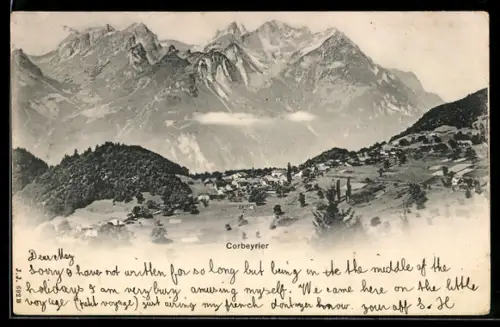 Corbeyrier
J.J. 6928
Dear May
Sorry I have not written for so long but being in the the middle of the
holidays I am very busy amusing myself. We came here on the little
voyage (petit voyage) just airing my french dont you know. your aff S.H